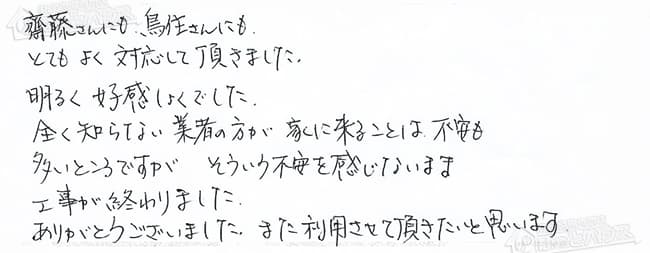 齋藤さんにも、鳥住さんにも、
とても よく 対応して 頂きました。
明るく 好感しょくでした。
全く知らない 業者の方が 家に来ることは、不安も
多いところですが そういう不安を感じないまま
工事が終わりました。
ありがとうございました。また利用させて頂きたいと思います。